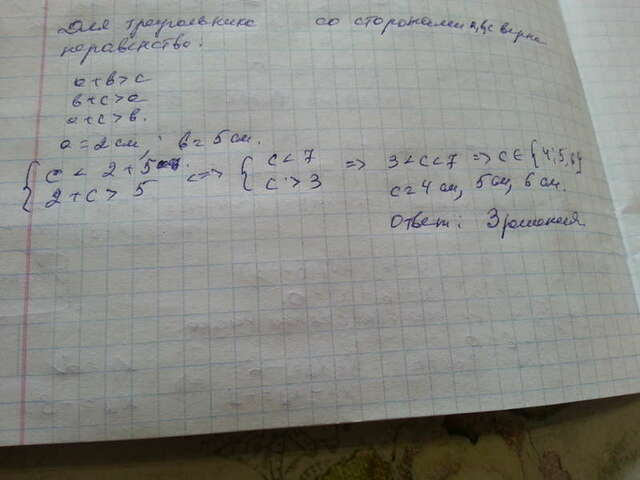 Для треугольника со сторонами a, b, c верно
неравенство:
a + b > c
b + c > a
a + c > b.
a = 2 см ; b = 5 см.
{ c < 2 + 5 <=> { c < 7 => 3 < c < 7 => c ∈ {4; 5, 6}
2 + c > 5 c > 3 c = 4 см, 5 см, 6 см.
Ответ: 3